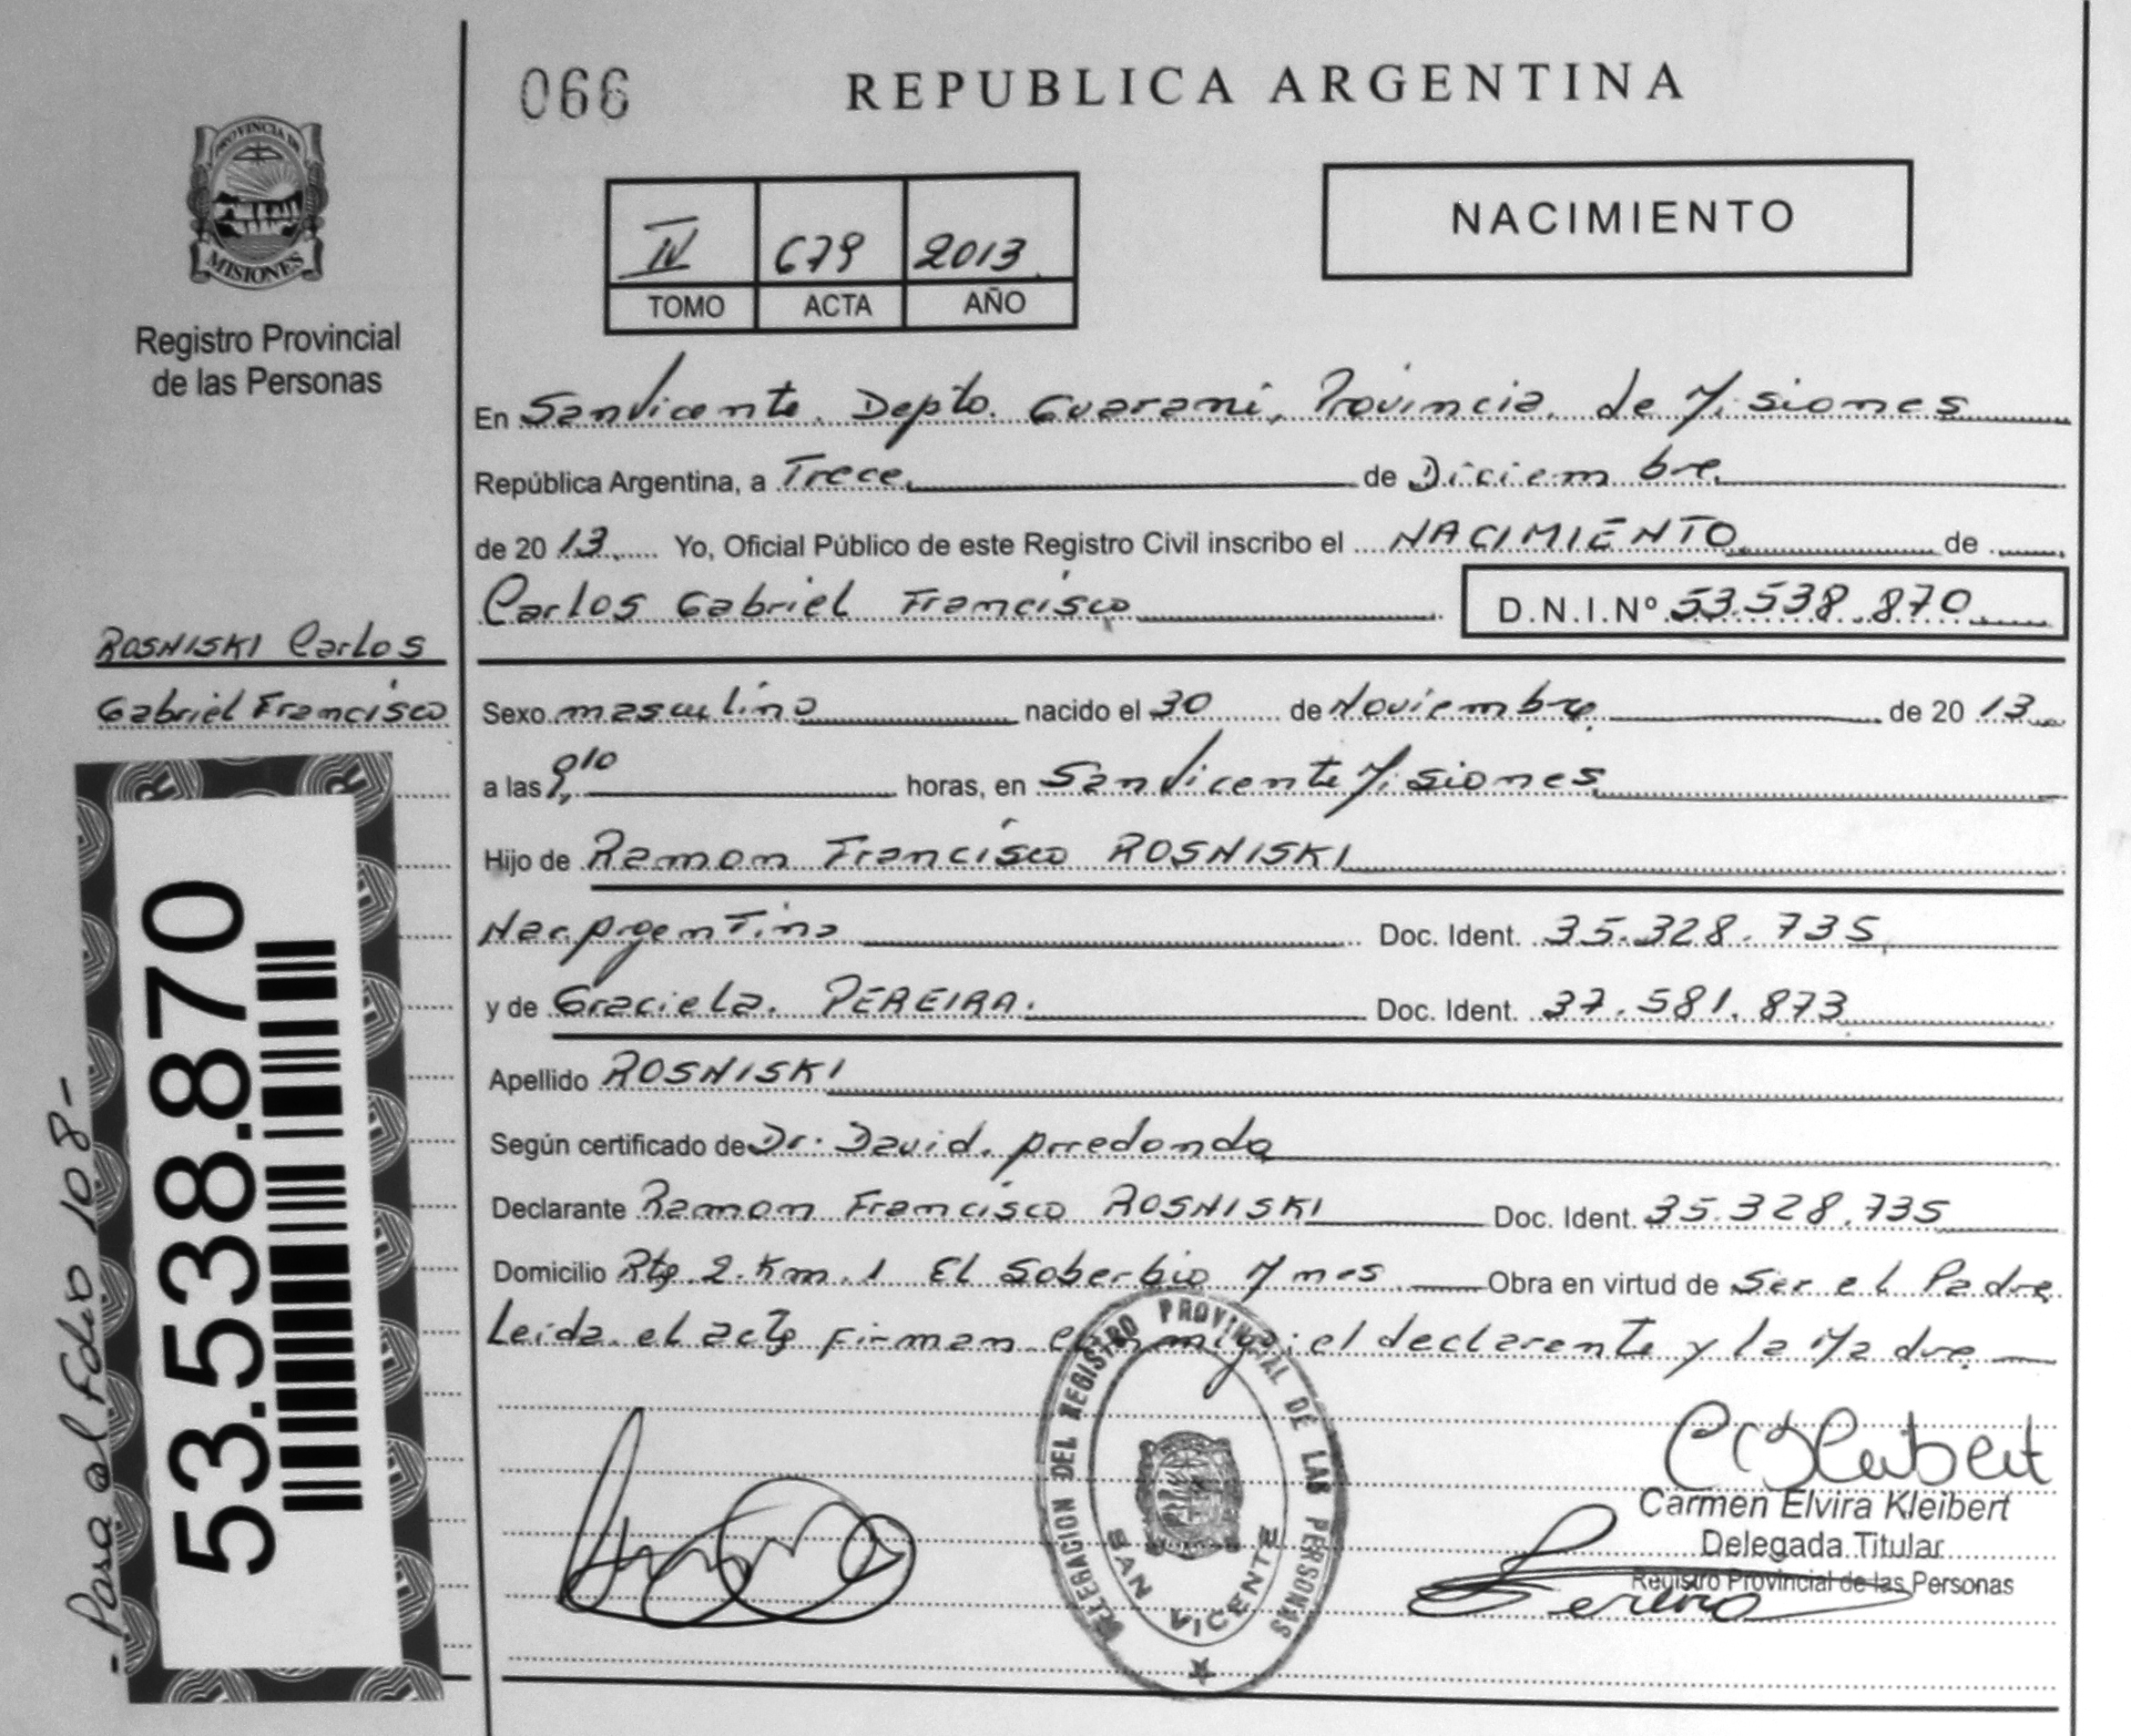 066
REPUBLICA ARGENTINA
PROVINCIA DE
MISIONES
Registro Provincial
de las Personas
IV 679 2013
TOMO ACTA AÑO
NACIMIENTO
En San Vicente. Depto. Guarani, Provincia de Misiones
República Argentina, a Trece de Diciembre
de 2013 Yo, Oficial Público de este Registro Civil inscribo el NACIMIENTO de
Carlos Gabriel Francisco D.N.I.Nº 53.538.870
ROSNISKI Carlos
Gabriel Francisco
Sexo masculino nacido el 30 de Noviembre de 2013
a las 9,10 horas, en San Vicente Misiones
Hijo de Ramon Francisco ROSNISKI
Nac. Argentina Doc. Ident. 35.328.735
y de Graciela. PEREIRA. Doc. Ident. 37.581.873
Apellido ROSNISKI
Según certificado de Dr. David. Arredondo
Declarante Ramon Francisco ROSNISKI Doc. Ident. 35.328.735
Domicilio Rta. 2. Km. 1 El Soberbio Mnes Obra en virtud de Ser el Padre
Leida el acta firman conmigo: el declarante y la Madre
53.538.870
- Pasa al Folio 108 -
DELEGACION DEL REGISTRO PROVINCIAL DE LAS PERSONAS
SAN VICENTE
CKleibert
Carmen Elvira Kleibert
Delegada Titular
Registro Provincial de las Personas